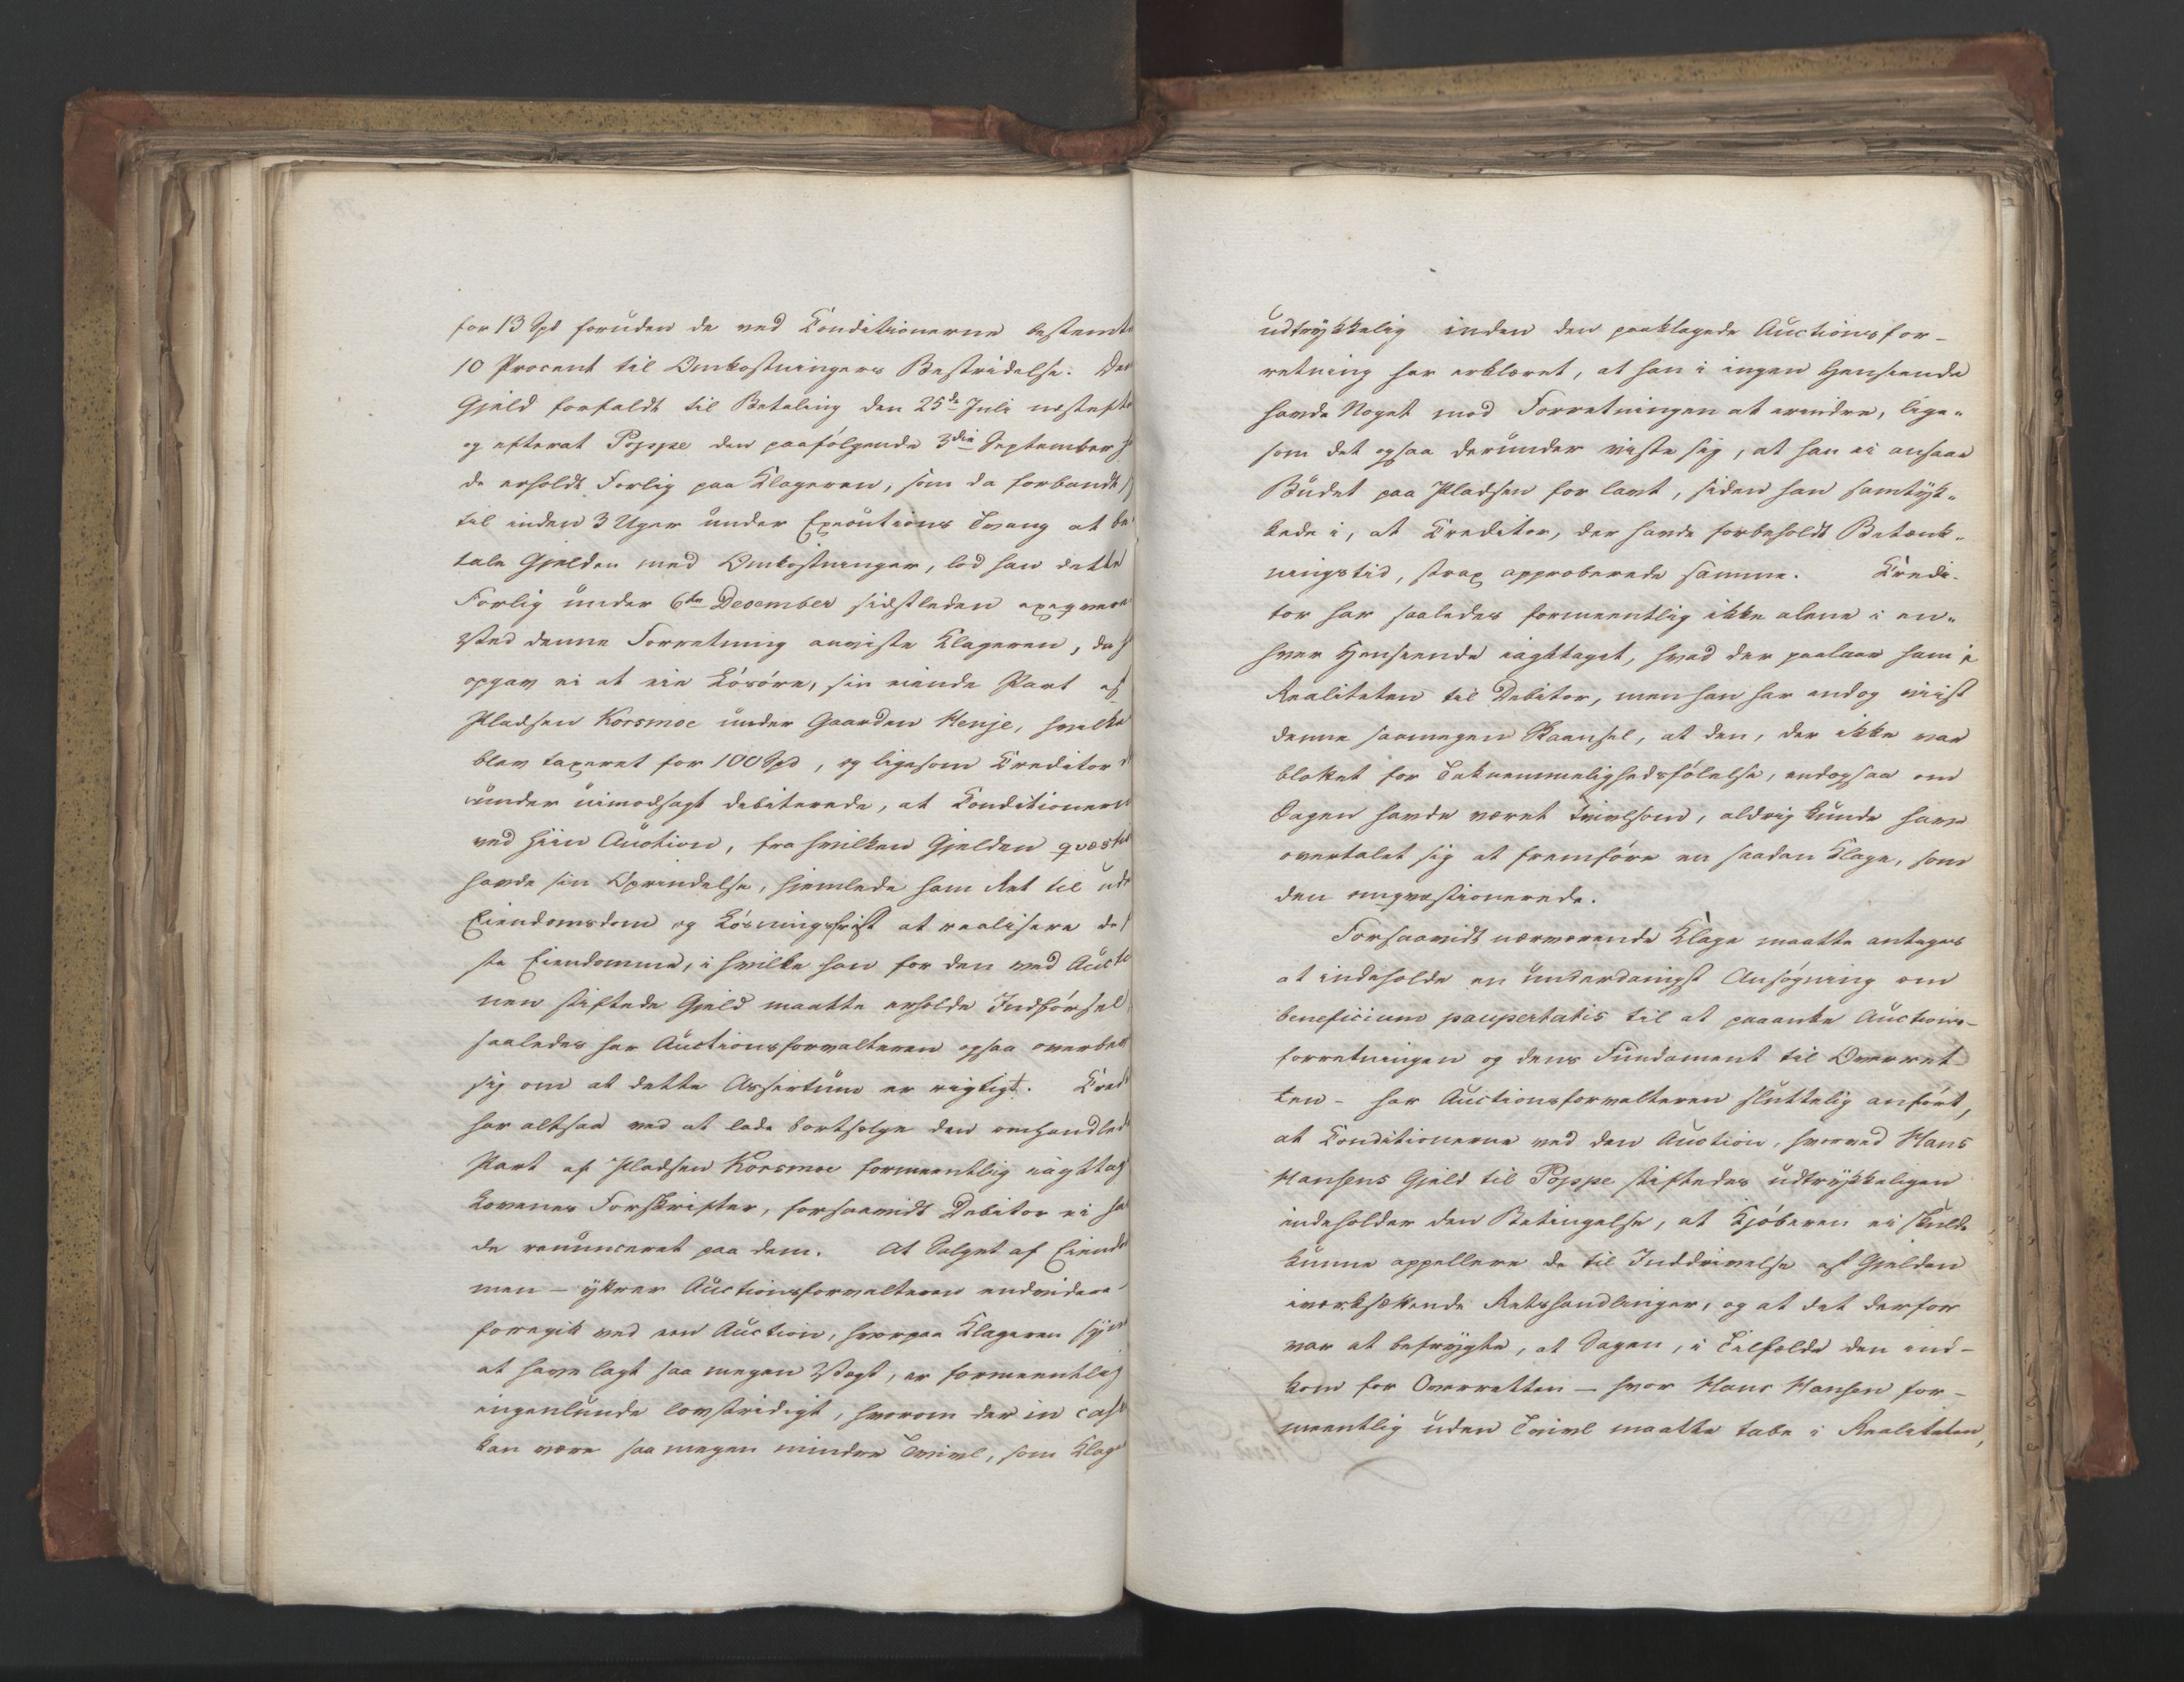 for 13 Spd foruden de ved Conditionerne bestemte
10 Procent til Omkostningers Bestridelse. Den
Gjeld forfaldt til Betaling den 25de Juli næstefte
og efterat Poppe den paafølgende 3die September ha
de erholdt Forlig paa Klageren, som da forbandt s
til inden 3 Uger under Executions Tvang at be
tale Gjelden med Omkostninger, lod han dette
Forlig under 6te December sidstleden exeqvere
Ved denne Forretning anviste Klageren, da h
opgav ei at eie Løsøre, sin eiende Part af
Pladsen Korsmoe under Gaarden Henje, hvilke
blev taxeret for 100 Spd, og ligesom Creditor d
under uimodsagt debiterede, at Conditionerne
ved hiin Auction, fra hvilken Gjelden qvæst
havde sin Oprindelse, hjemlede ham Ret til ude
Eiendomsdom og Løsningsfrist at realisere de f
ste Eiendomme, i hvilke han for den ved Auctio
nen stiftede Gjeld maatte erholde Indførsel,
saaledes har Auctionsforvalteren ogsaa overbe
sig om at dette Assertum er rigtigt. Credi
har altsaa ved at lade bortsælge den omhandlede
Part af Pladsen Korsmoe formeentlig iagttag
Lovenes Forskrifter, forsaavidt Debitor ei ha
de renunceret paa dem. At Salget af Eiendo
men – yttrer Auctionsforvalteren endvidere
foregik ved een Auction, hvorpaa Klageren syn
at have lagt saa megen Vægt, er formeentlig
ingenlunde lovstridigt, hvorom der in casu
kan være saa megen mindre Tvivl, som Klage
udtrykkelig inden den paaklagede Auctionsfor-
retning har erklæret, at han i ingen Henseende
havde Noget mod Forretningen at erindre, lige-
som det ogsaa derunder viste sig, at han ei ansaae
Budet paa Pladsen for lavt, siden han samtyk-
kede i, at Creditor, der havde forbeholdt Betænk-
ningstid, strax approberede samme. Credi-
tor har saaledes formeentlig ikke alene i en-
hver Henseende iagttaget, hvad der paalaae ham i
Realiteten til Debitor, men han har endog viist
denne saamegen Skaansel, at den, der ikke var
blottet for Taknemmelighedsfølelse, endogsaa om
Sagen havde været tvivlsom, aldrig kunde have
overtalet sig at fremføre en saadan Klage, som
den omqvæstionerede.
Forsaavidt nærværende Klage maatte antages
at indeholde en underdanigst Ansøgning om
beneficium paupertatis til at paaanke Auctions-
forretningen og dens Fundament til Overret-
ten – har Auctionsforvalteren sluttelig anført,
at Conditionerne ved den Auction, hvorved Hans
Hansens Gjeld til Poppe stiftedes udtrykkeligen
indeholder den Betingelse, at Kjøberen ei skulde
kunne appellere de til Inddrivelse af Gjelden
iværksættende Retshandlinger, og at det derfor
var at befrygte, at Sagen, i Tilfælde den ind-
kom for Overretten – hvor Hans Hansen for-
meentlig uden Tvivl maatte tabe i Realiteten,